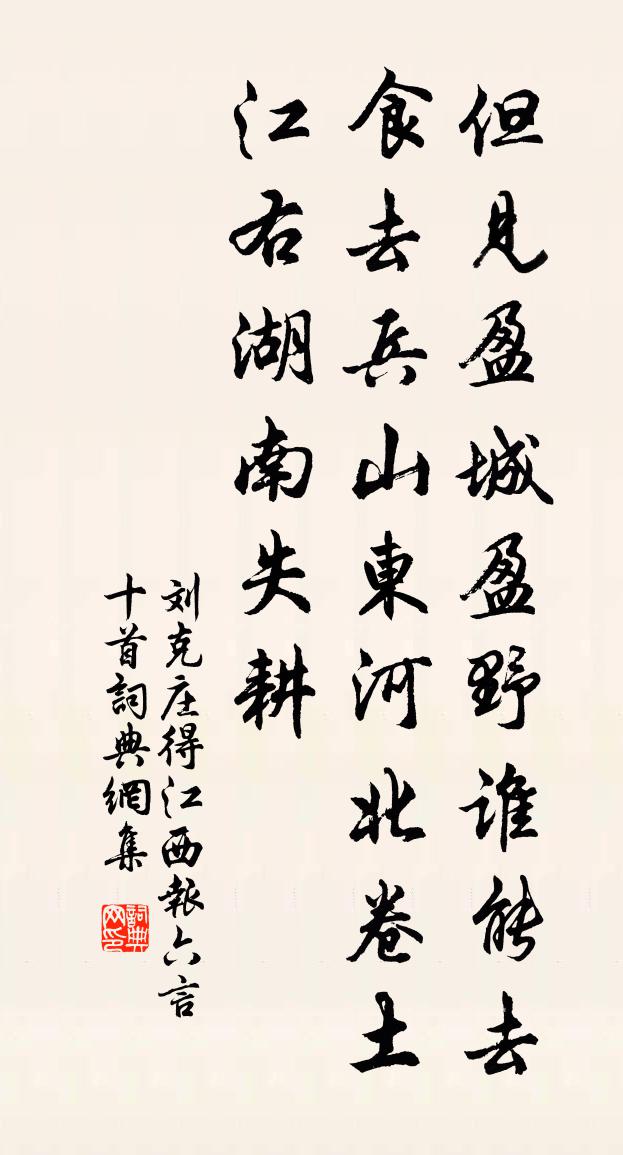 但見盈城盈野誰能去
食去兵山東河北卷土
江右湖南失耕
刘克庄得江西報六言
十首詞典網集
詞典
网印